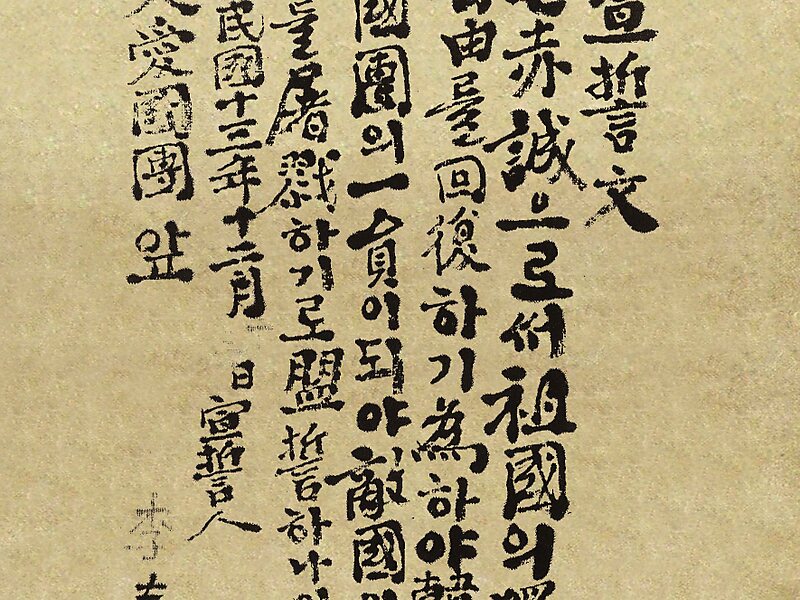 宣誓文
赤誠으로써祖國의
由를回復하기爲하야韓
國團의一員이되야敵國의
를屠戮하기로盟誓하나이
民國十三年十二月 日 宣誓人
李
愛國團 앞